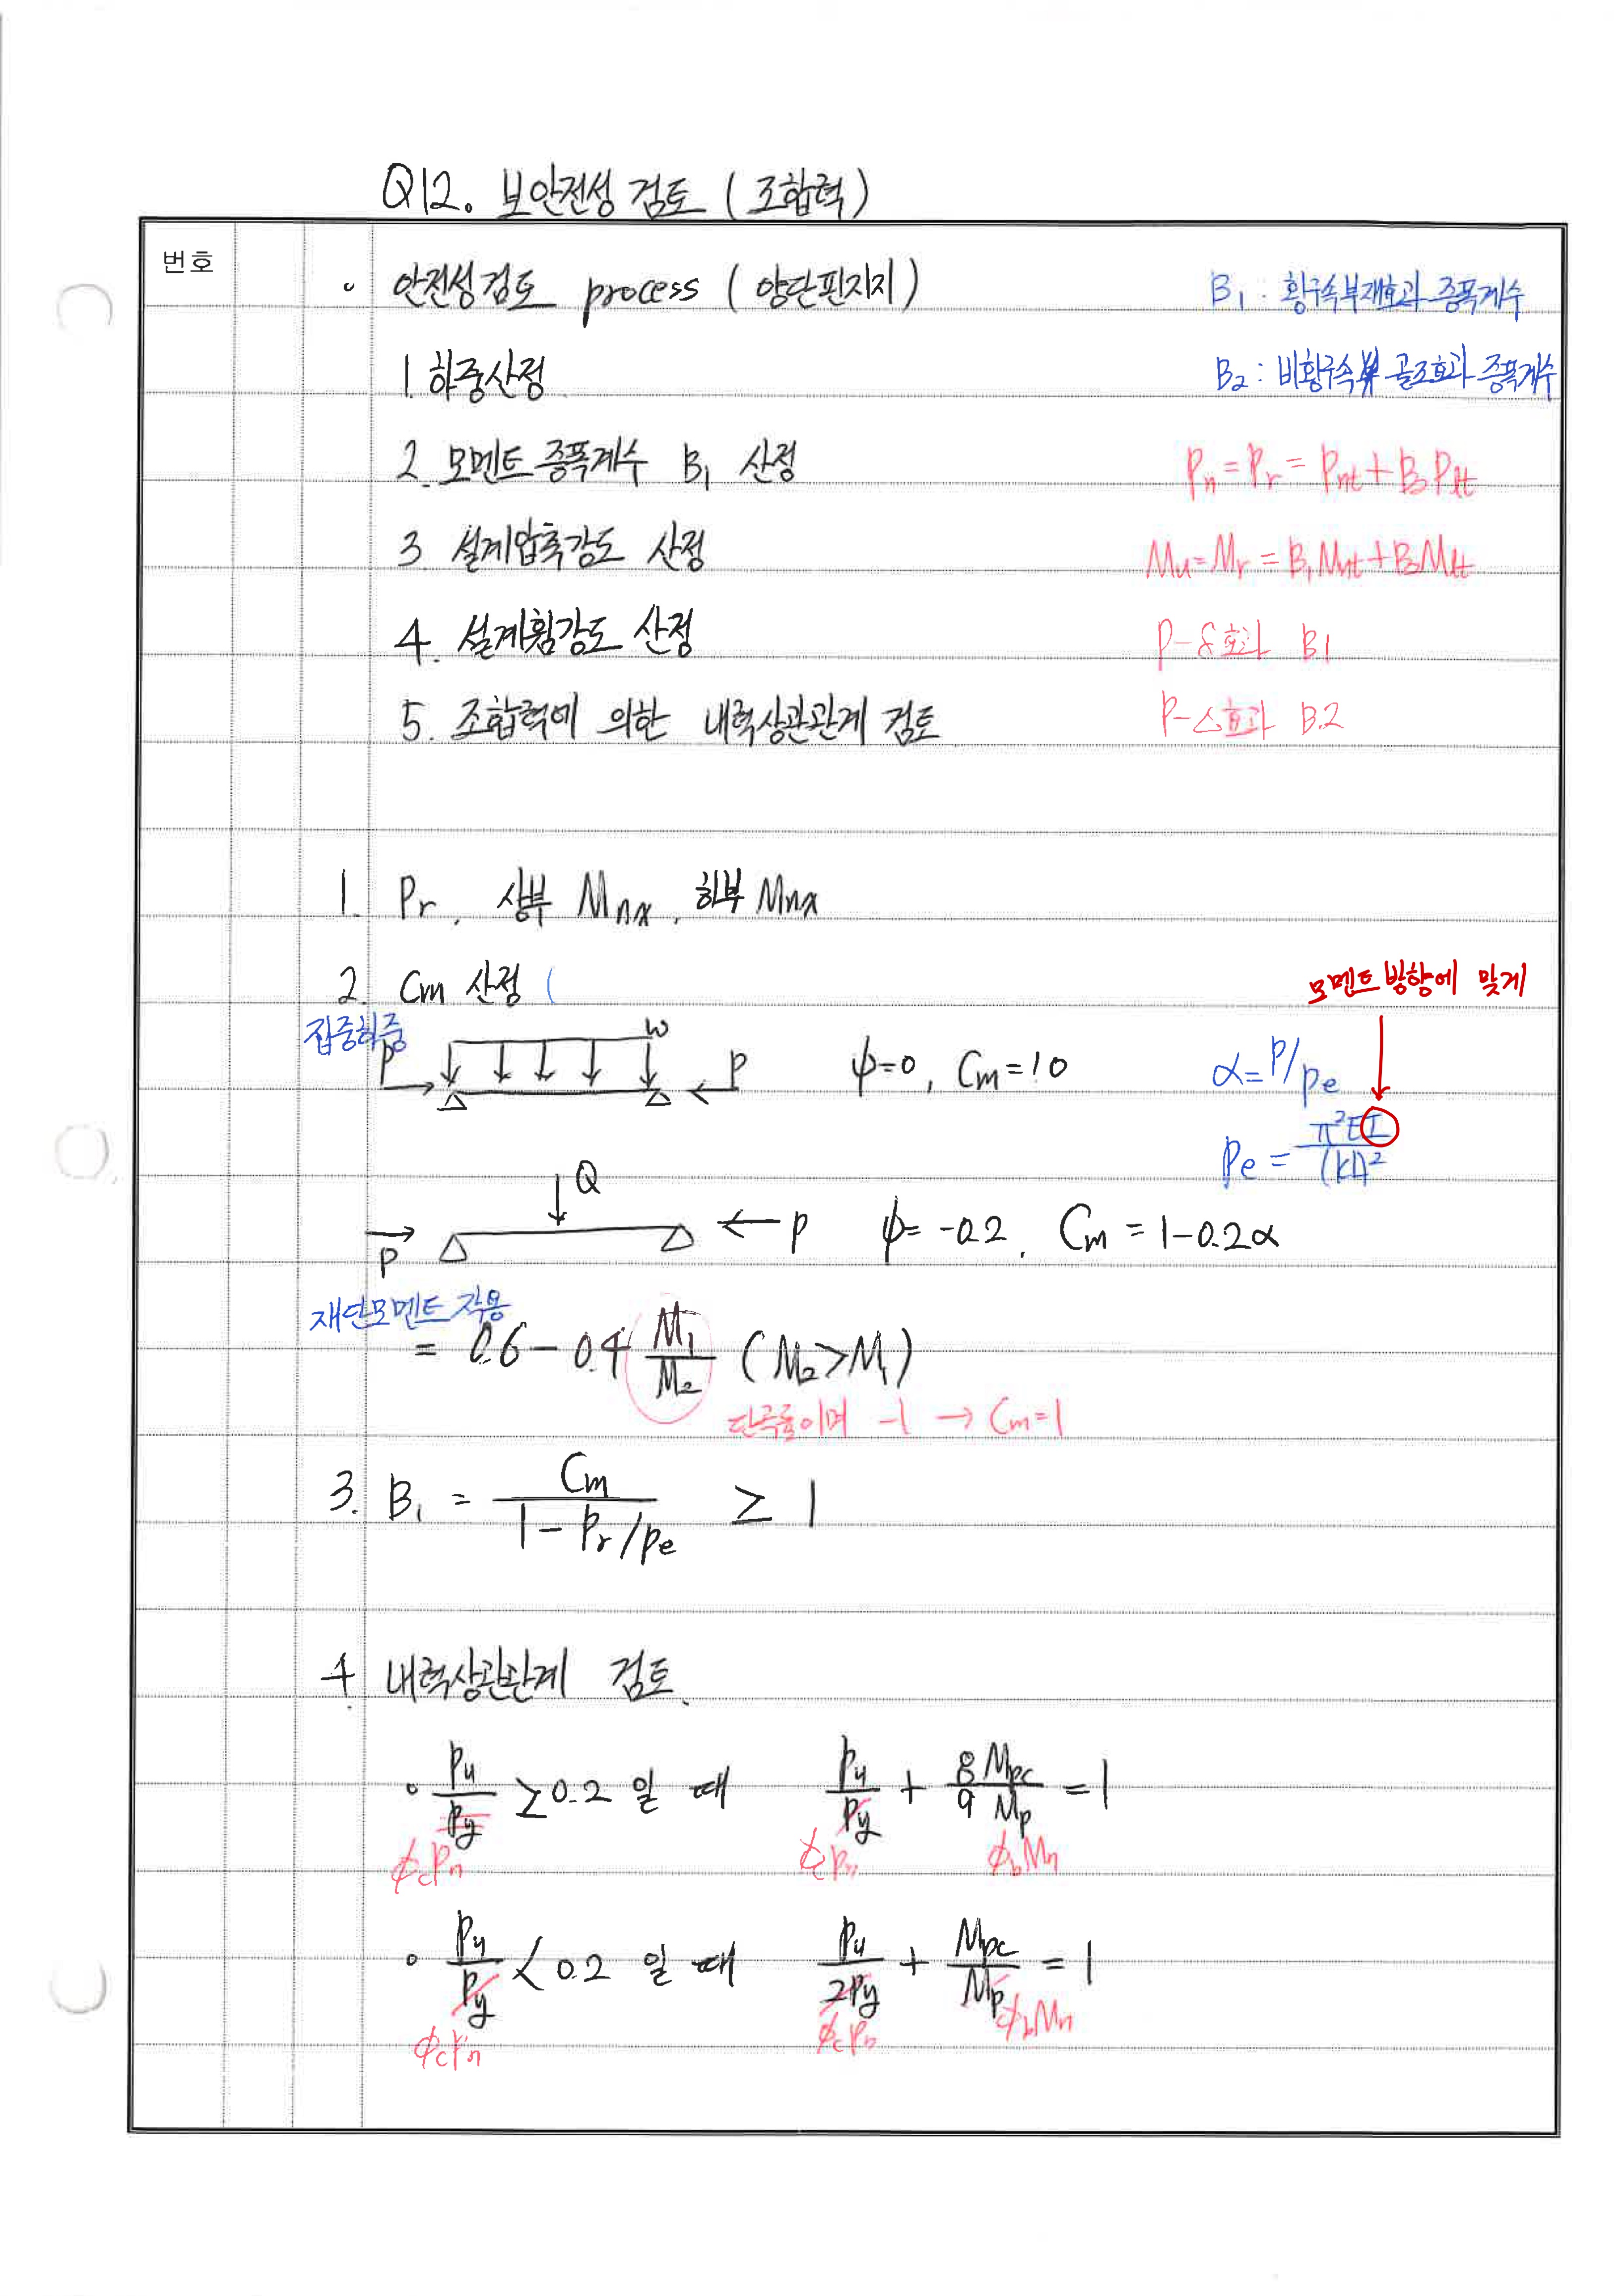 Q12. 보안전성 검토 (조합력)
번호
∘ 안전성검토 process (양단핀지지)
B1 : 횡구속부재효과 증폭계수
1. 하중산정
B2 : 비횡구속 골조효과 증폭계수
2. 모멘트 증폭계수 B1 산정
Pn = Pr = Pnt + B2Plt
3. 설계압축강도 산정
Mu = Mr = B1Mnt + B2Mlt
4. 설계휨강도 산정
P-δ효과 B1
5. 조합력에 의한 내력상관관계 검토
P-△효과 B.2
1. Pr, 상부 Mnx, 하부 Mnx
2. Cm 산정 (
모멘트방향에 맞게
집중하중
P w P ψ=0, Cm=1.0
α=P/Pe
Pe = π²EI/(Kl)²
Q
P P ψ= -0.2, Cm = 1-0.2α
재단모멘트 작용
= 0.6 - 0.4 M1/M2 (M2>M1)
단곡률이며 -1 → Cm=1
3. B1 = Cm/(1 - Pr/Pe) ≥ 1
4. 내력상관관계 검토.
∘ Pu/Py ≥ 0.2 일 때 Pu/Py + 8/9 Mpc/Mp = 1
ϕcPn ϕcPn ϕbMn
∘ Pu/Py < 0.2 일 때 Pu/2Py + Mpc/Mp = 1
ϕcPn ϕcPn ϕbMn